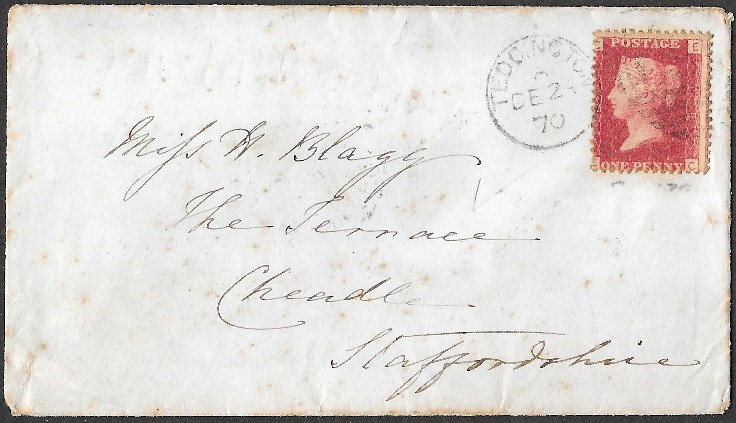 TEDDINGTON
A
DE 2
70
POSTAGE
E
ONE PENNY
C
Miss H. Blagg
The Terrace
Cheadle
Staffordshire